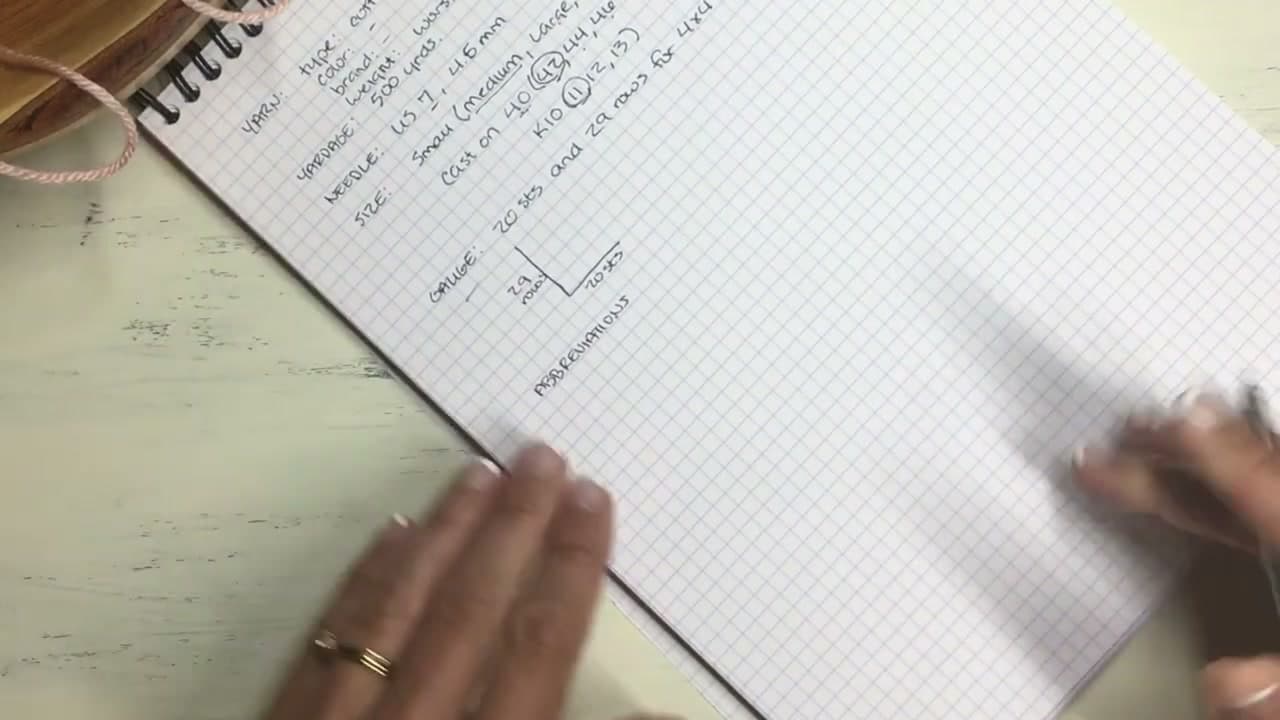 YARN: type:
color: -
brand: -
weight:
YARDAGE: 500 yrds.
NEEDLE: US 7, 4.5 mm
SIZE: small (medium, large,
cast on 40 (42, 44, 46
K10 (11, 12, 13)
GAUGE: 20 sts and 29 rows for 4x4
29 rows
20 sts
ABBREVIATIONS